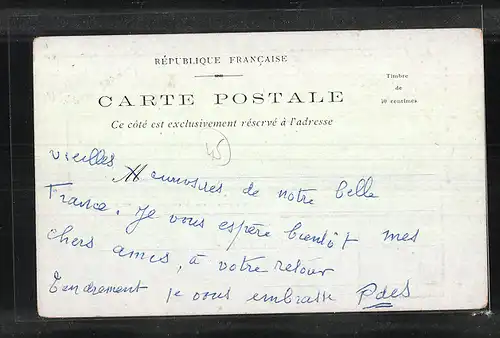 RÉPUBLIQUE FRANÇAISE
CARTE POSTALE
Timbre
de
10 centimes
Ce côté est exclusivement réservé à l'adresse
45
vieilles
de notre belle
France. Je vous espère bientôt mes
chers amis, à votre retour
Tendrement je vous embrasse